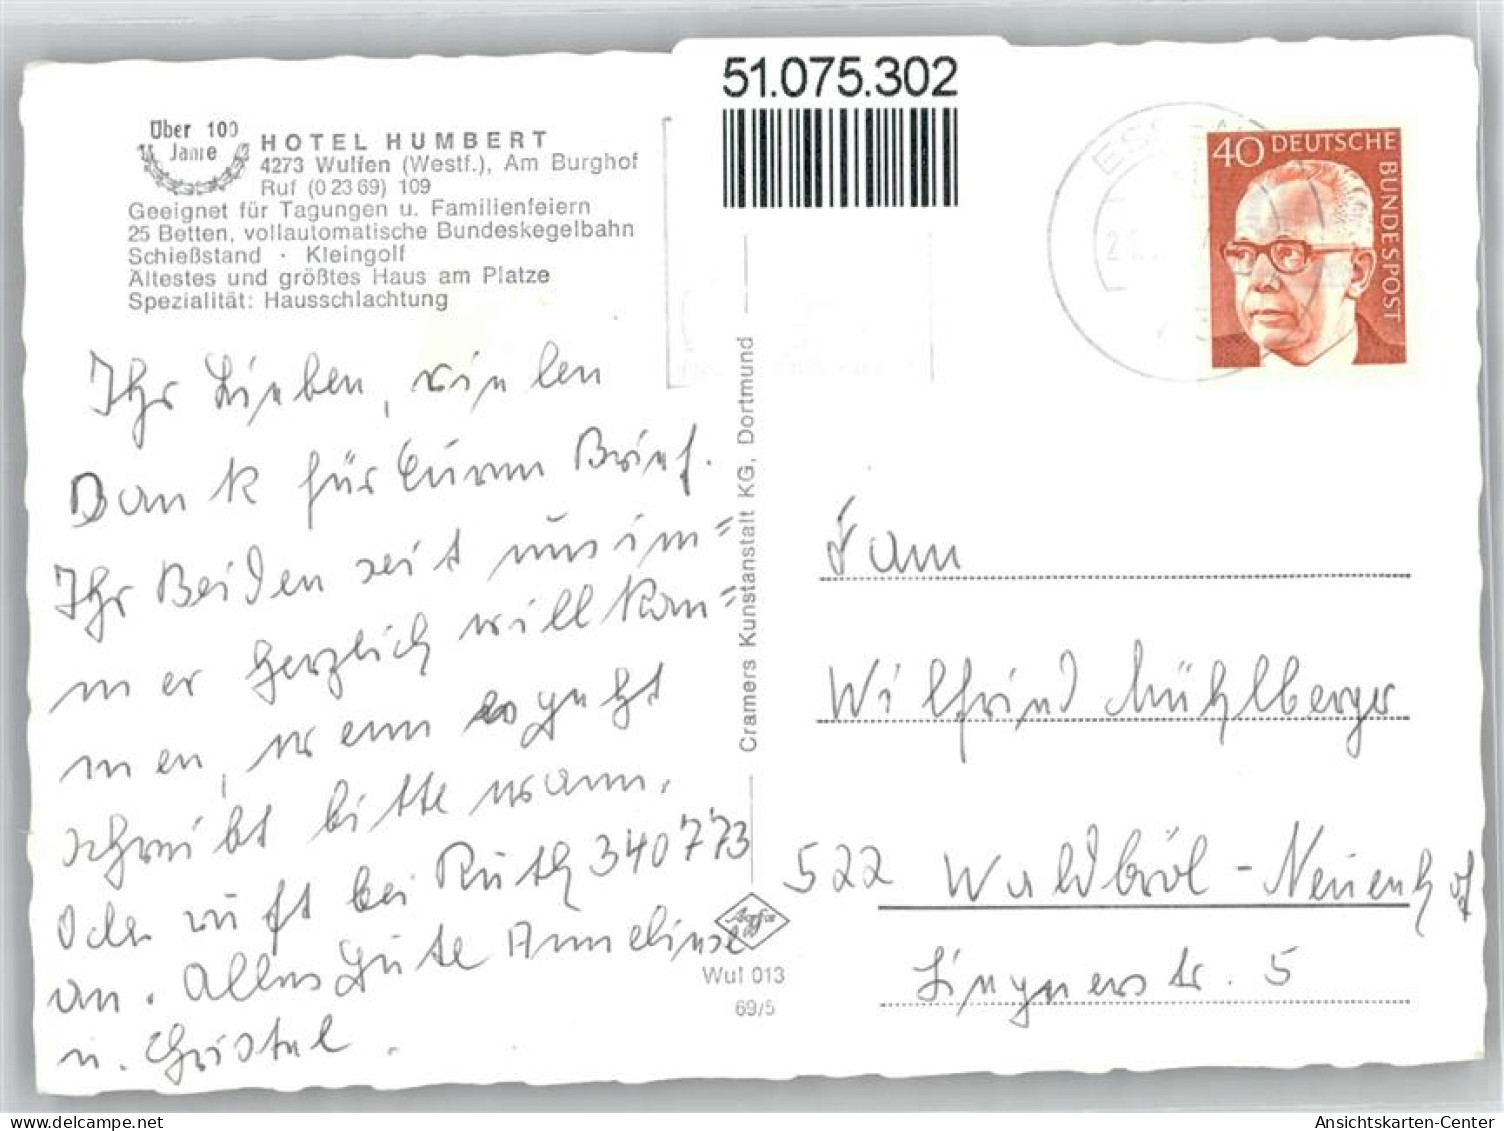 51.075.302
Über 100
Jahre
HOTEL HUMBERT
4273 Wulfen (Westf.), Am Burghof
Ruf (0 23 69) 109
Geeignet für Tagungen u. Familienfeiern
25 Betten, vollautomatische Bundeskegelbahn
Schießstand · Kleingolf
Ältestes und größtes Haus am Platze
Spezialität: Hausschlachtung
Ihr Lieben, vielen
Dank für Euren Brief.
Ihr Beiden seit uns im=
mer herzlich willkom=
men, wenn es geht
schreibt bitte wann.
Oder ruft bei Ruth 340773
an. Alles Gute Anneliese
u. Christel.
Cramers Kunstanstalt KG, Dortmund
Agfa
Wul 013
69/5
40 DEUTSCHE
BUNDESPOST
ESSEN
Fam
Wilfried Mühlberger
522 Waldbröl-Neuenhof
Lingnerstr. 5
delcampe.net
Ansichtskarten-Center